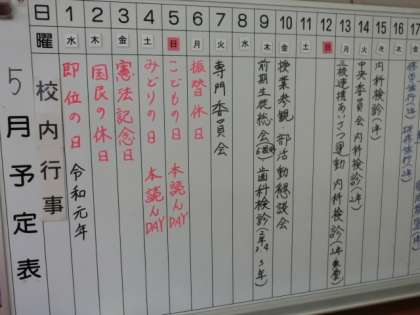 5月予定表
日 1 2 3 4 5 6 7 8 9 10 11 12 13 14 15 16 17
曜 水 木 金 土 日 月 火 水 木 金 土 日 月 火 水 木
校内行事
即位の日 令和元年
国民の休日
憲法記念日
みどりの日 本読んDAY
こどもの日 本読んDAY
振替休日
専門委員会
前期生徒総会 歯科検診
授業参観 部活動懇談会
あいさつ運動 内科検診
中央委員会 内科検診
内科検診